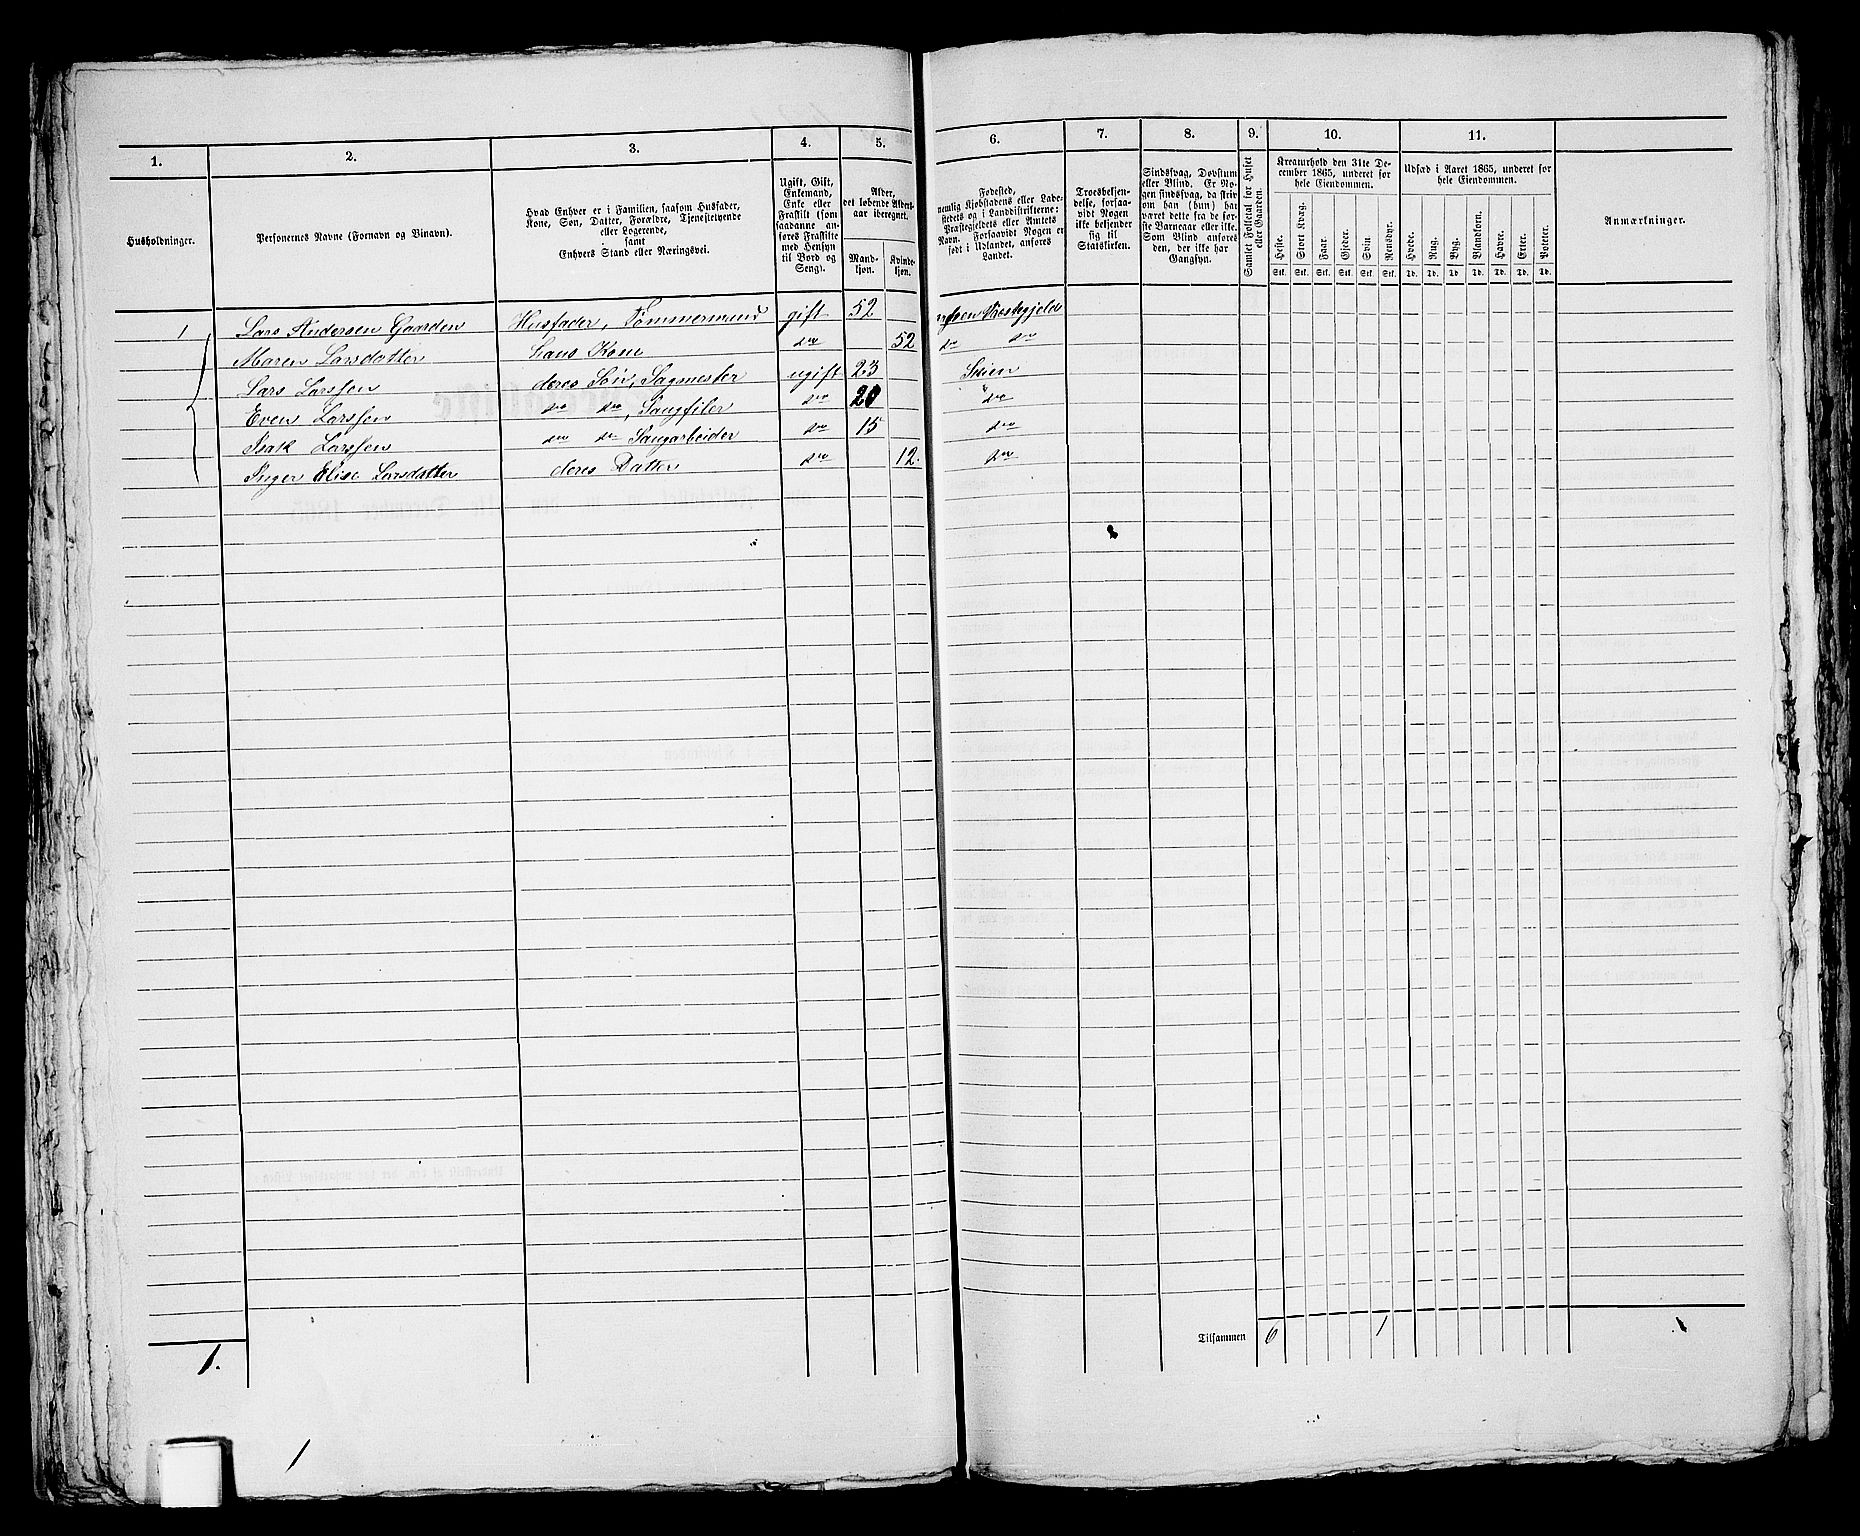 1. 2. 3. 4. 5. 6. 7. 8. 9. 10. 11.
Husholdninger.
Personernes Navne (Fornavn og Vinavn).
Hvad Enhver er i Familien, saasom Husfader,
Kone, Søn, Datter, Forældre, Tjenestetyende
eller Logerende,
samt
Enhvers Stand eller Næringsvei.
Ugift, Gift,
Enkemand,
Enke eller
Fraskilt (som
saadanne an-
føres Fraskilte
med Hensyn
til Bord og
Seng).
Alder,
det løbende Alders-
aar iberegnet.
Mand-
kjøn.
Kvinde-
kjøn.
Fødested,
nemlig Kjøbstadens eller Lade-
stedets og i Landdistrikterne:
Præstegjeldets eller Amtets
Navn. Forsaavidt Nogen er
født i Udlandet, anføres
Landet.
Troesbekjen-
delse, forsaa-
vidt Nogen
ikke bekjender
sig til
Statskirken.
Sindssvag, Døvstum
eller Blind. Er No-
gen sindssvag, da skriv
om han (hun) har
været dette fra de før-
ste Barneaar eller ikke.
Som Blind anføres
den, der ikke har
Gangsyn.
Samlet Folketal for Huset
eller Gaarden.
Kreaturhold den 31te De-
cember 1865, underet for
hele Eiendommen.
Heste. Stort Kvæg. Faar. Gjeder. Svin. Rensdyr.
Stk. Stk. Stk. Stk. Stk. Stk.
Udsæd i Aaret 1865, underet for
hele Eiendommen.
Hvede. Rug. Byg. Blandkorn. Havre. Erter. Poteter.
Td. Td. Td. Td. Td. Td. Td.
Anmærkninger.
1 Lars Andersen Gaarden Husfader, Tømmermand gift 52 Præstegjeld
Maren Larsdatter hans Kone do 52 do do
Lars Larssen deres Søn, Sagmester ugift 23 Skien
Even Larssen do do, Saugfiler do 20 do
Isak Larssen do do Saugarbeider do 15 do
Inger Elise Larsdatter deres Datter do 12 do
Tilsammen 6 1
1.
1